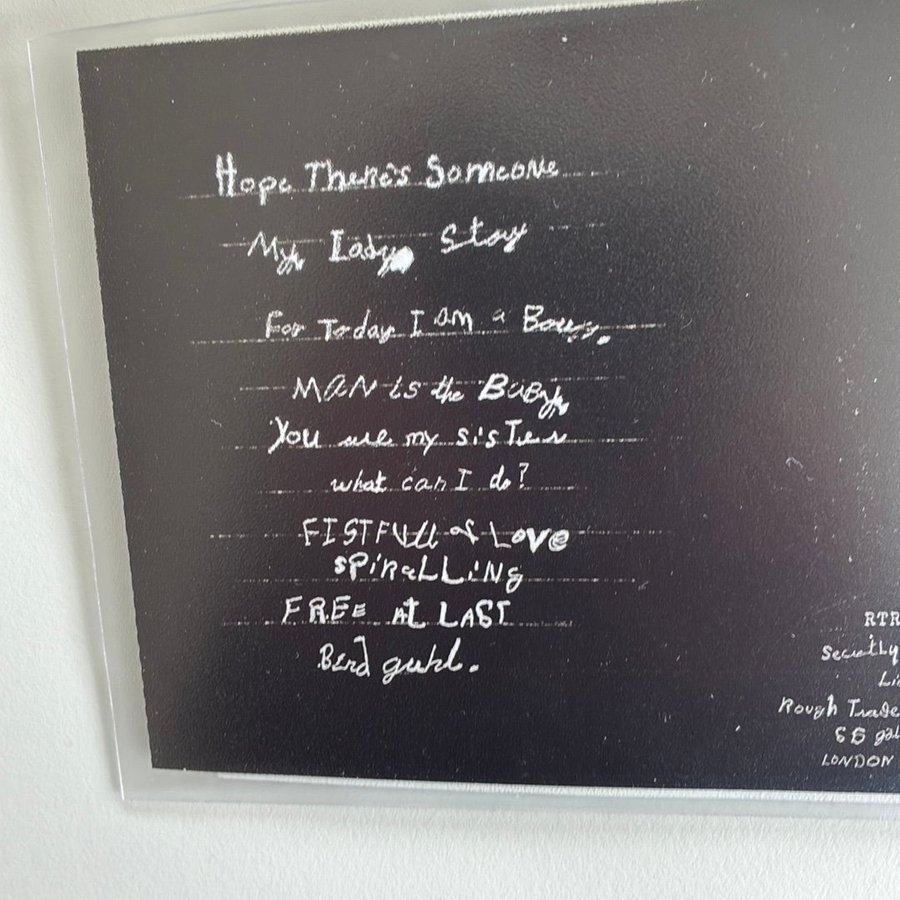 Hope There's Someone
My Lady Stay
For Today I am a Boy.
MAN is the Baby
You are my sister
what can I do?
FISTFULL of LOVE
SPIRALLING
FREE AT LAST
Bird guhl.
RTR
Secretly
Rough Trade
66 gol
LONDON